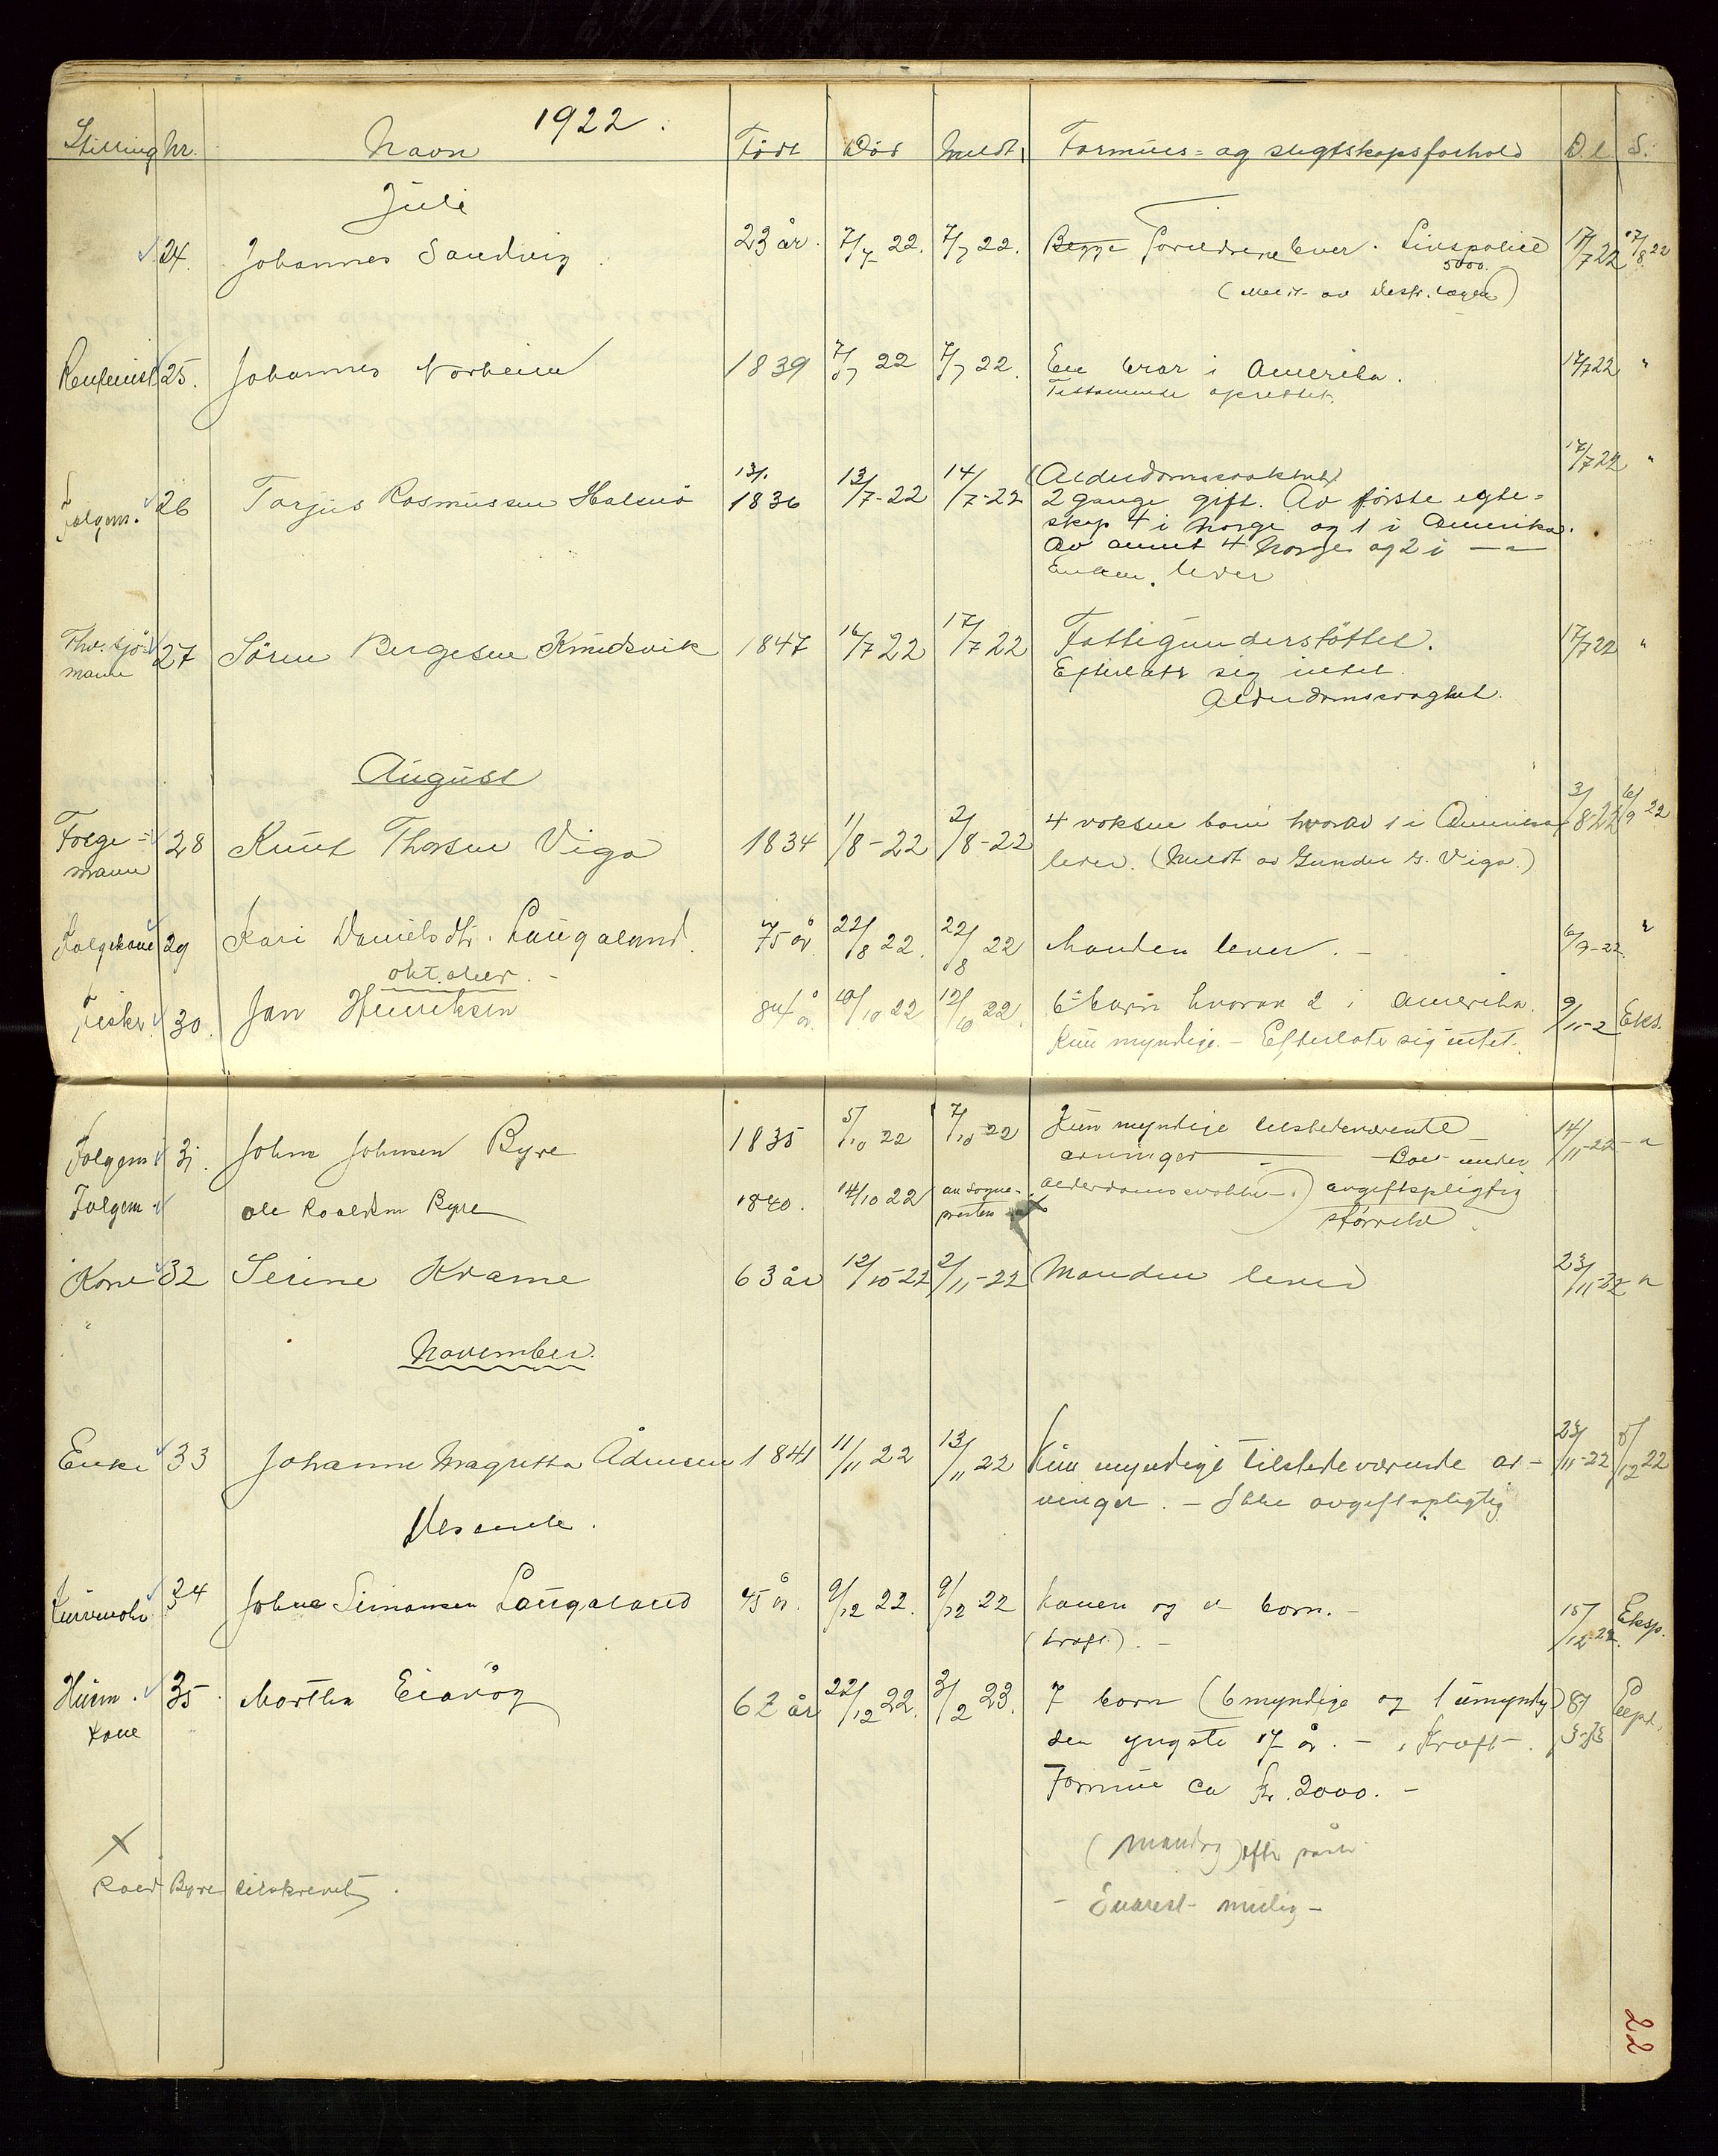 1922.
Stilling Nr. Navn Født Død Meldt Formues= og slegtskapsforhold D.l. S.
Juli
24. Johannes Sandvig 23 år. 7/7 22. 7/7 22. Begge Forældrene lever. Livspolice 17/7 22 17/8 22
5000.
(Meldt av Distr. lægen)
Rentenist 25. Johannes Norheim 1839 7/7 22 7/7 22. En bror i Amerika. 17/7 22 "
Testamente oprettet.
13/1 (Alderdomssvakhet) 17/7 22 "
Folgem. 26 Torjus Rasmussen Halsnö 1836 13/7-22 14/7-22 2 gange gift. Av første egte=
skap 4 i Norge og 1 i Amerika.
Av annet 4 Norge og 2 i — " —
Enken lever
Fhv. sjö= 27 Sören Bergesen Knudsvik 1847 16/7 22 17/7 22 Fattigunderstöttet. 17/7 22 "
mann Efterlatr sig intet.
Alderdomssvaghet.
August
Folge= 28 Knut Thorsen Viga 1834 1/8-22 2/8-22 4 voksne barn hvorav 1 i Amerika 3/8-22 6/9 22
mann lever. (Meldt av Gunder K. Viga.)
Folgekone 29 Kari Danielsdtr. Laugaland. 75 år. 22/8 22. 22/8 22 Manden lever. – 6/9-22. "
oktober. –
Fisker 30. Jan Henriksen 84 år. 10/10 22 12/10 22. 6 barn hvorav 2 i Amerika. 9/11-2 Eks.
Kun myndige. – Efterlater sig intet.
Folgem 31. John Johnsen Byre 1835 5/10 22 7/10-22 Kun myndige tilstedeværende 14/11-22 – "
arvinger – Boet under
Folgem – Ole Roaldsen Byre 1840. 14/10 22 av sogne- alderdomssvakhet –. avgiftspligtig
presten størrelse.
Kone 32 Serine Krame 63 år 12/10-22 2/11-22 Manden lever 23/11-22 "
"
November.
Enke 33 Johanne Magretha Ådnesen 1841 11/11 22 13/11 22 Kun myndige tilstedeværende ar- 23/11-22 8/12 22
vinger. – Ikke avgiftspligtig
Desember.
34 Johne Simonsen Laugaland 45 år. 9/12 22. 9/12 22 Konen og barn. – 15/12-22. Eksp.
(kræft). –
Husm. 35. Martha Eiavåg 62 år 22/12 22. 3/2 23. 7 barn (6 myndige og 1 umyndig) 8/3-23
kone den yngste 17 år. – Kræft –.
Formue ca kr. 2000. –
(Mandig) efter påske
X
Roald Byre tilskrevet. – Snarest mulig –
22